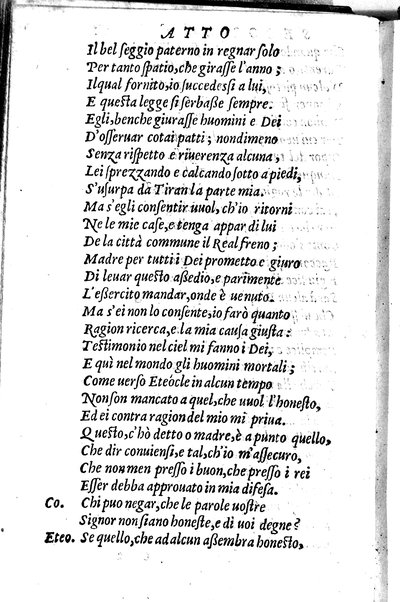 ATTO
Il bel ſeggio paterno in regnar ſolo
Per tanto ſpatio, che giraſſe l'anno;
Ilqual fornito, io ſuccedeſſi a lui,
E queſta legge ſi ſerbaſſe ſempre.
Egli, benche giuraſſe huomini e Dei
D'oſſeruar cotai patti; nondimeno
Senza riſpetto e riuerenza alcuna,
Lei ſprezzando e calcando ſotto a piedi,
S'uſurpa da Tiran la parte mia.
Ma s'egli conſentir uuol, ch'io ritorni
Ne le mie caſe, e tenga a par di lui
De la città commune il Real freno;
Madre per tutti i Dei prometto e giuro
Di leuar queſto aſſedio, e parimente
L'eſſercito mandar, onde è uenuto.
Ma s'ei non lo conſente, io farò quanto
Ragion ricerca, e la mia cauſa giuſta:
Teſtimonio nel ciel mi fanno i Dei,
E quì nel mondo gli huomini mortali;
Come uerſo Eteòcle in alcun tempo
Non ſon mancato a quel, che uuol l'honeſto,
Ed ei contra ragion del mio mi priua.
Queſto, c'hò detto o madre, è a punto quello,
Che dir conuienſi, e tal, ch'io m'aſſecuro,
Che non men preſſo i buon, che preſſo i rei
Eſſer debba approuato in mia difeſa.
Co. Chi puo negar, che le parole uoſtre
Signor non ſiano honeſte, e di uoi degne?
Eteo. Se quello, che ad alcun aſſembra honeſto,